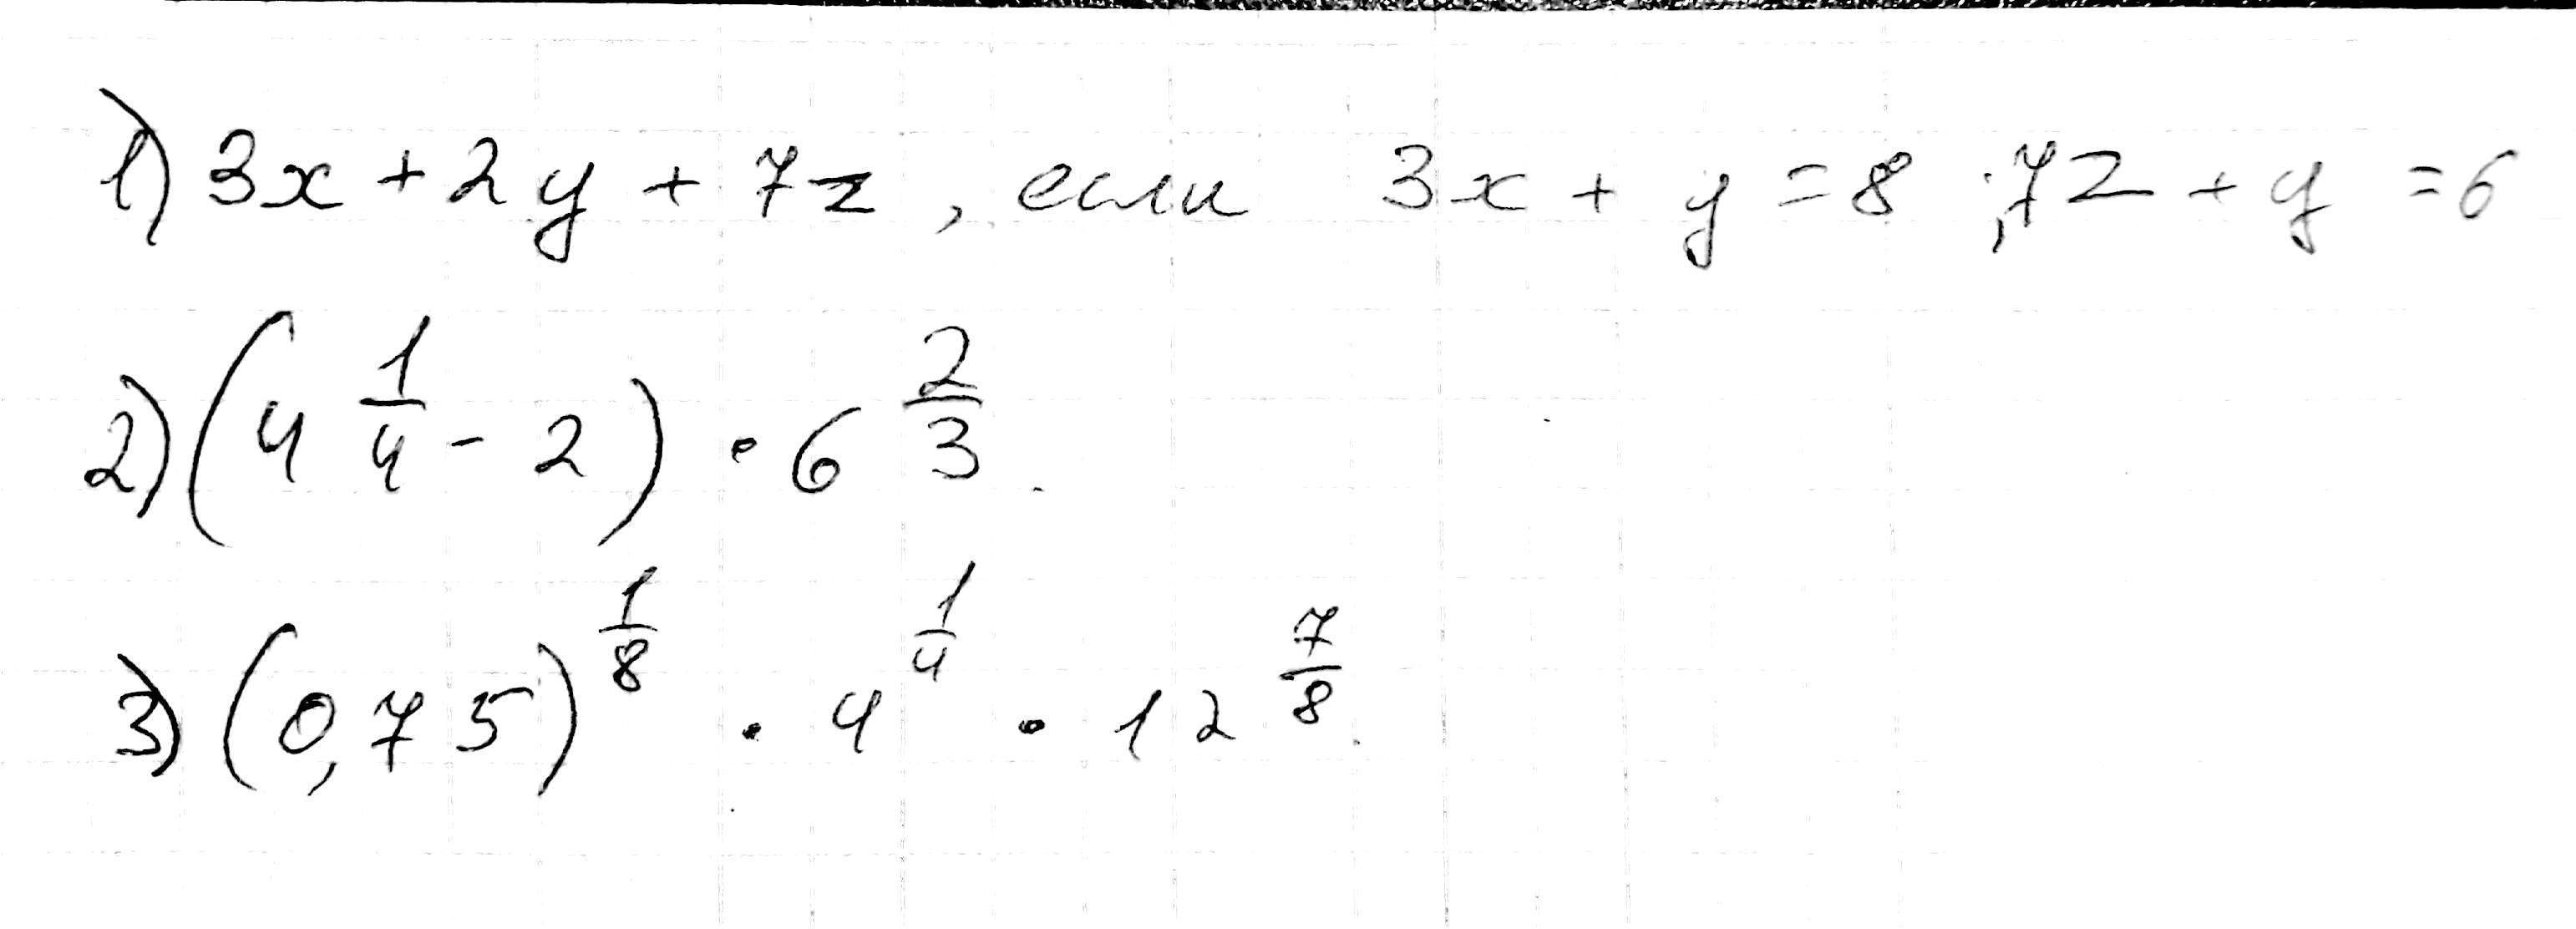 1) 3x + 2y + 7z, если 3x + y = 8 ; 7z + y = 6
2) (4 1/4 - 2) · 6 2/3.
3) (0,75)^(1/8) · 4^(1/4) · 12^(7/8).